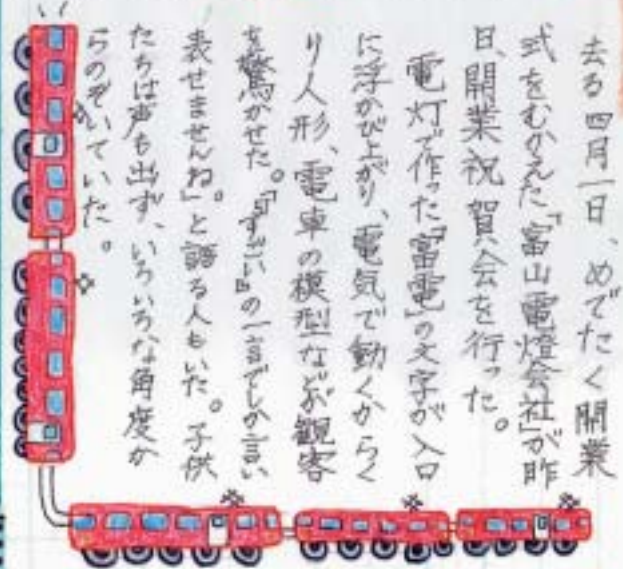 去る四月一日、めでたく開業
式をむかえた「富山電燈会社」が昨
日、開業祝賀会を行った。
電灯で作った「富電」の文字が入口
に浮かび上がり、電気で動くからく
り人形、電車の模型などが観客
を驚かせた。「『すごい』の一言でしか言い
表せませんね」と語る人もいた。子供
たちは声も出ず、いろいろな角度か
らのぞいていた。